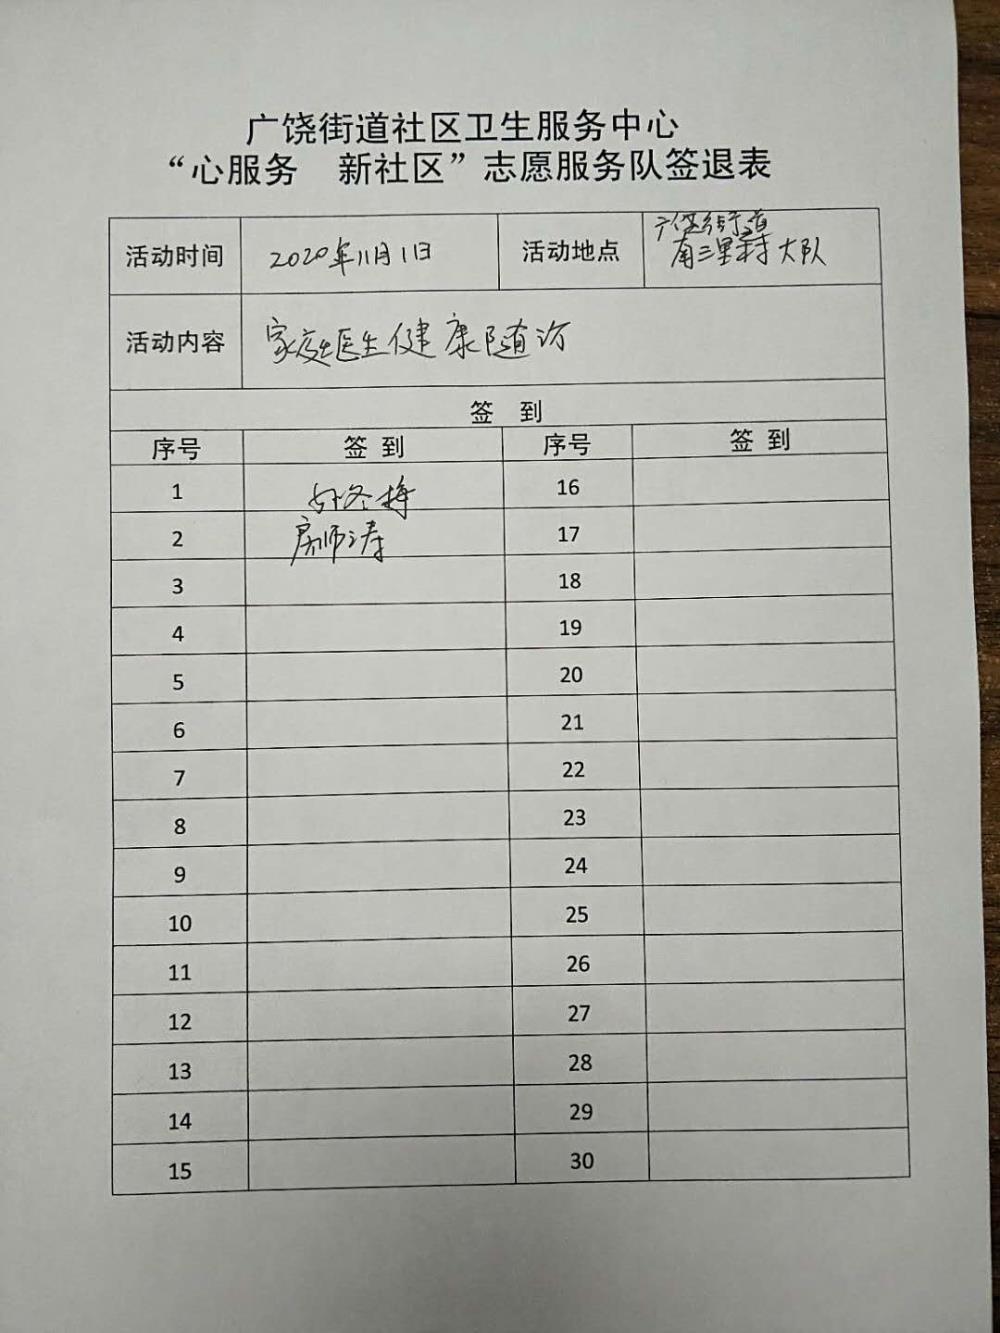 广饶街道社区卫生服务中心
“心服务 新社区”志愿服务队签退表
活动时间 2020年11月1日 活动地点 广饶街道
南三里村大队
活动内容 家庭医生健康随访
签 到
序号 签 到 序号 签 到
1 冬梅 16
2 房师涛 17
3 18
4 19
5 20
6 21
7 22
8 23
9 24
10 25
11 26
12 27
13 28
14 29
15 30